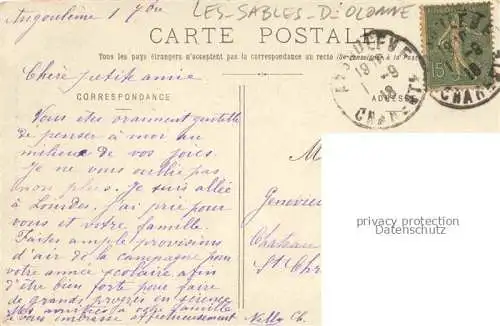 Angoulême 1 7bre
LES-SABLES-D'OLONNE
CARTE POSTALE
Tous les pays étrangers n'acceptent pas la correspondance au recto (Se renseigner à la Poste)
Chère petite amie
CORRESPONDANCE
ADRESSE
15
Vous êtes vraiment gentille
de penser à moi au
milieu de vos joies.
Je ne vous oublie pas
non plus. Je suis allée
à Lourdes. J'ai prié pour
vous et votre famille.
Faites ample provisions
d'air de la campagne pour
votre année scolaire afin
d'être bien forte pour faire
de grands progrès en science
Mes amitiés à votre famille
je vous embrasse affectueusement
Nelly Ch.
M
Geneviève
Chateau
St Chr
privacy protection
Datenschutz